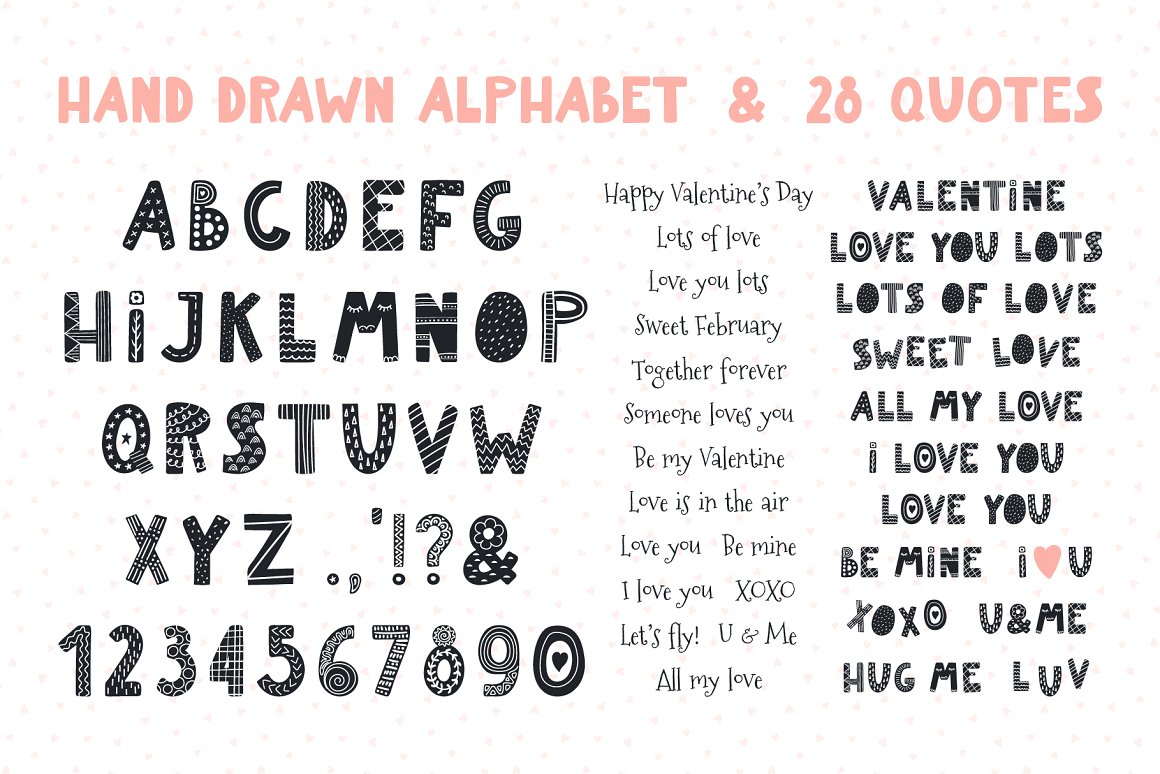 HAND DRAWN ALPHABET & 28 QUOTES
ABCDEFG
HiJKLMNOP
QRSTUVW
XYZ . , ' ! ? &
1234567890
Happy Valentine's Day
Lots of love
Love you lots
Sweet February
Together forever
Someone loves you
Be my Valentine
Love is in the air
Love you Be mine
I love you XOXO
Let's fly! U & Me
All my love
VALENTiNE
LOVE YOU LOTS
LOTS OF LOVE
SWEET LOVE
ALL MY LOVE
i LOVE YOU
LOVE YOU
BE MiNE i U
XOXO U&ME
HUG ME LUV